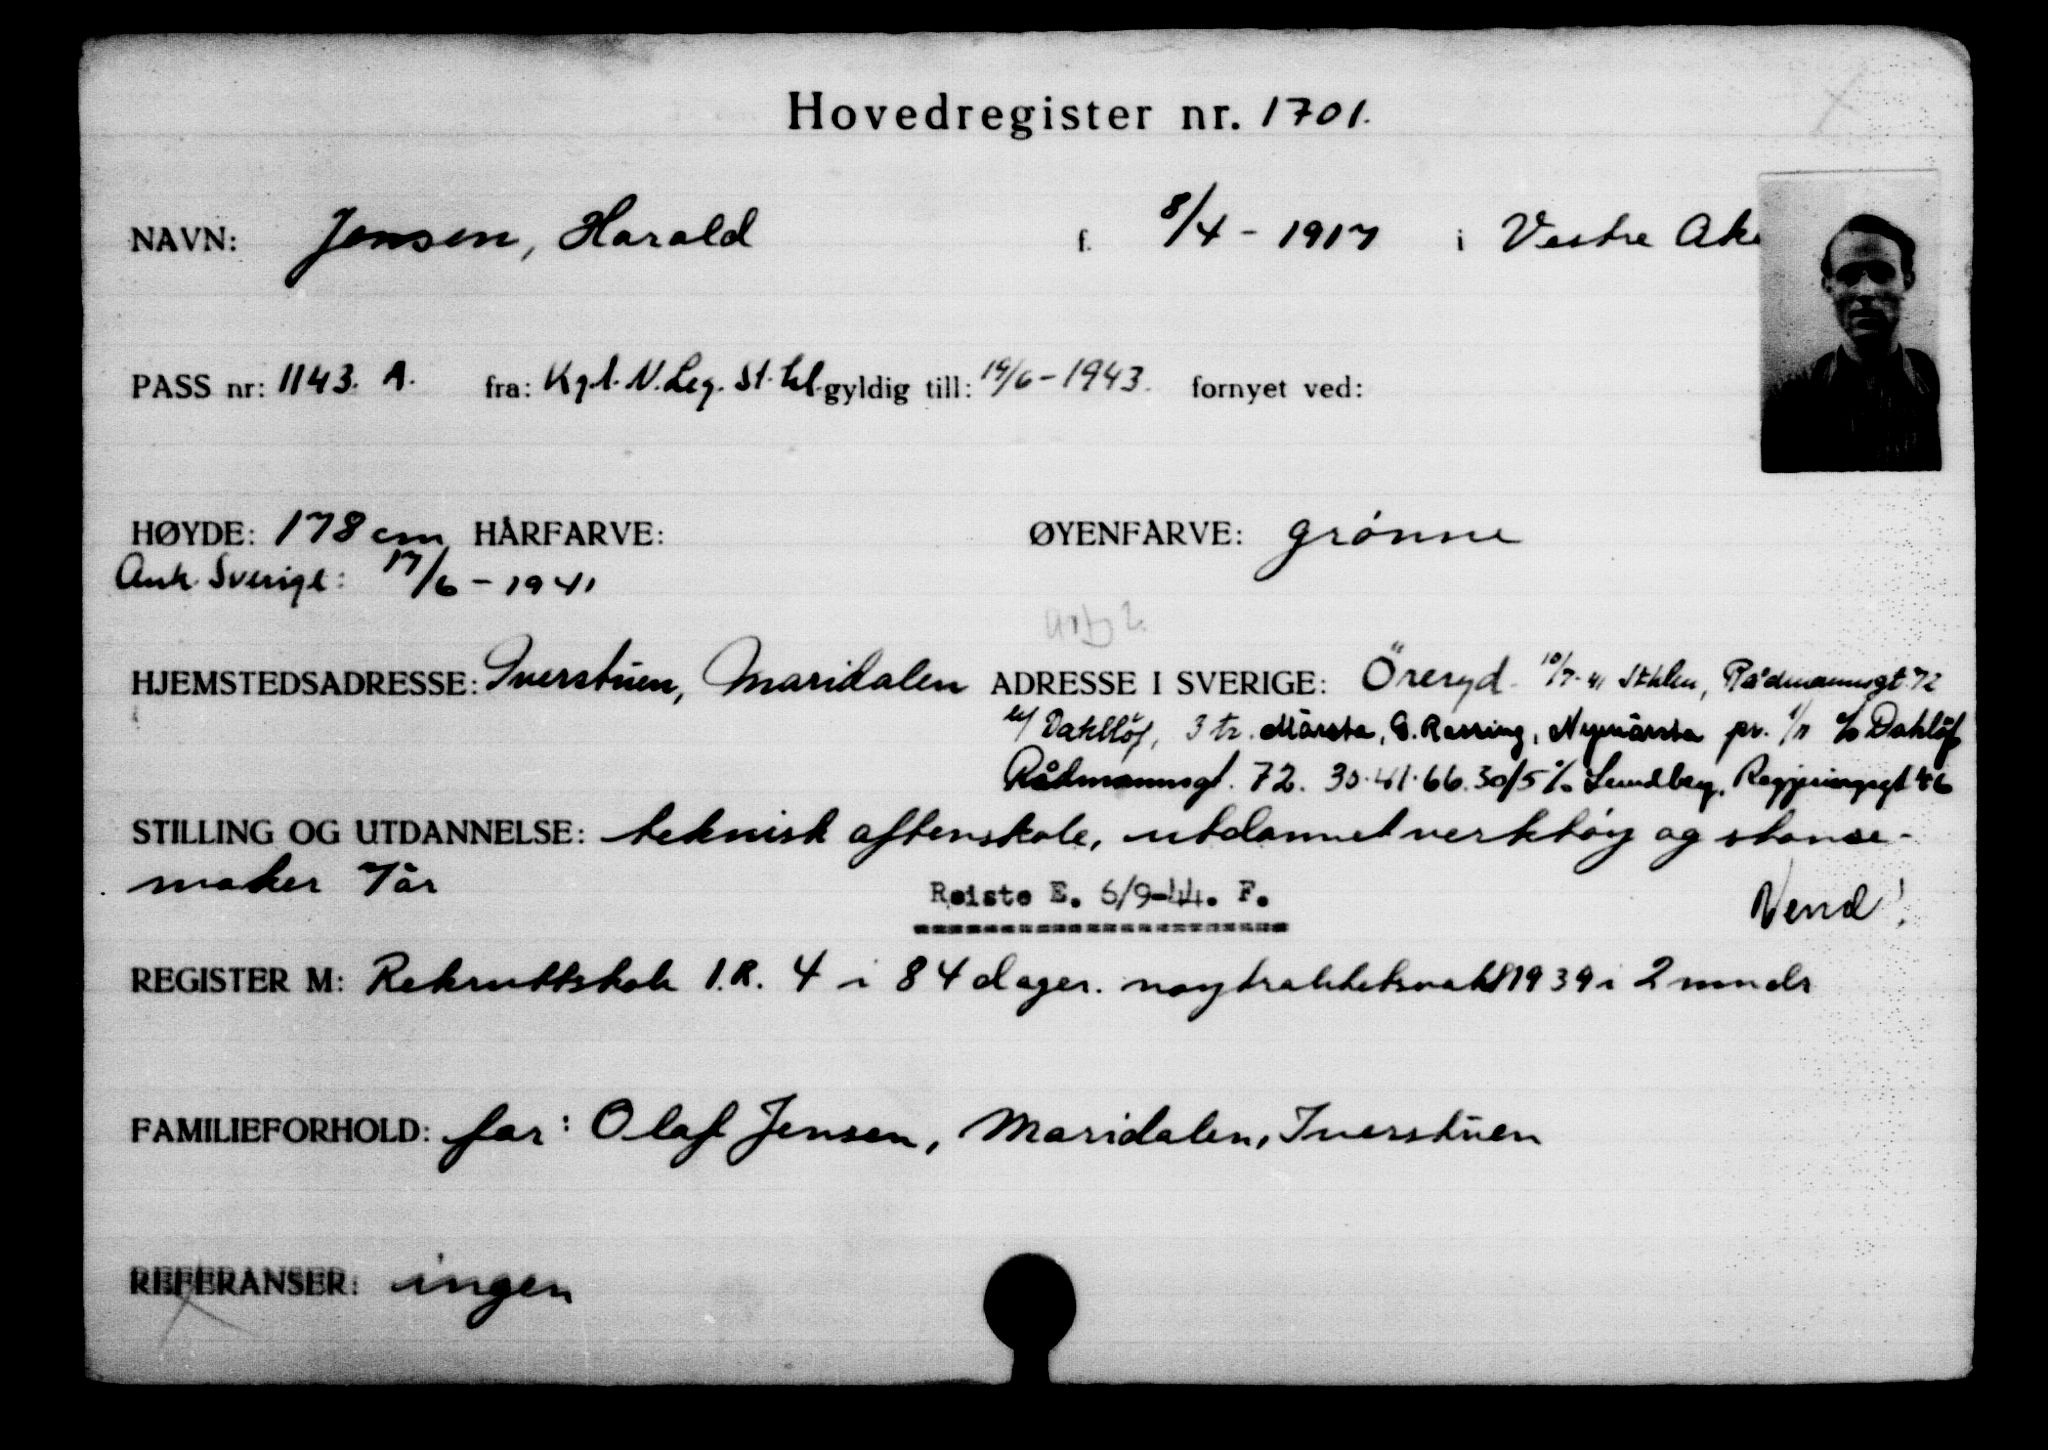 Hovedregister nr. 1701.
NAVN: Jensen, Harald f. 8/4 - 1917 i Vestre Ake
PASS nr: 1143. A. fra: Kgl. N. Leg. St.hl. gyldig till: 19/6 - 1943. fornyet ved:
HØYDE: 178 cm HÅRFARVE: ØYENFARVE: grønne
Ank. Sverige: 17/6 - 1941
HJEMSTEDSADRESSE: Iverstuen, Maridalen ADRESSE I SVERIGE: Öreryd 10/7-41 Sthlm, Rådmannsgt. 72
Dahllöf, 3 tr. Märsta, Nymärsta pr. 1/1 c/o Dahlöf
Rådmannsgt. 72. 30.41.66. 30/5 c/o Lundberg, Regjeringsgt 46
STILLING OG UTDANNELSE: teknisk aftenskole, utdannet verktøy og stanse-
maker 7 år
Reiste E. 5/9-44. F.
Vend!
REGISTER M: Rekruttskole I.R. 4 i 84 dager. nøytralitetsvakt 1939 i 2 mndr
FAMILIEFORHOLD: far: Olaf Jensen, Maridalen, Iverstuen
REFERANSER: ingen